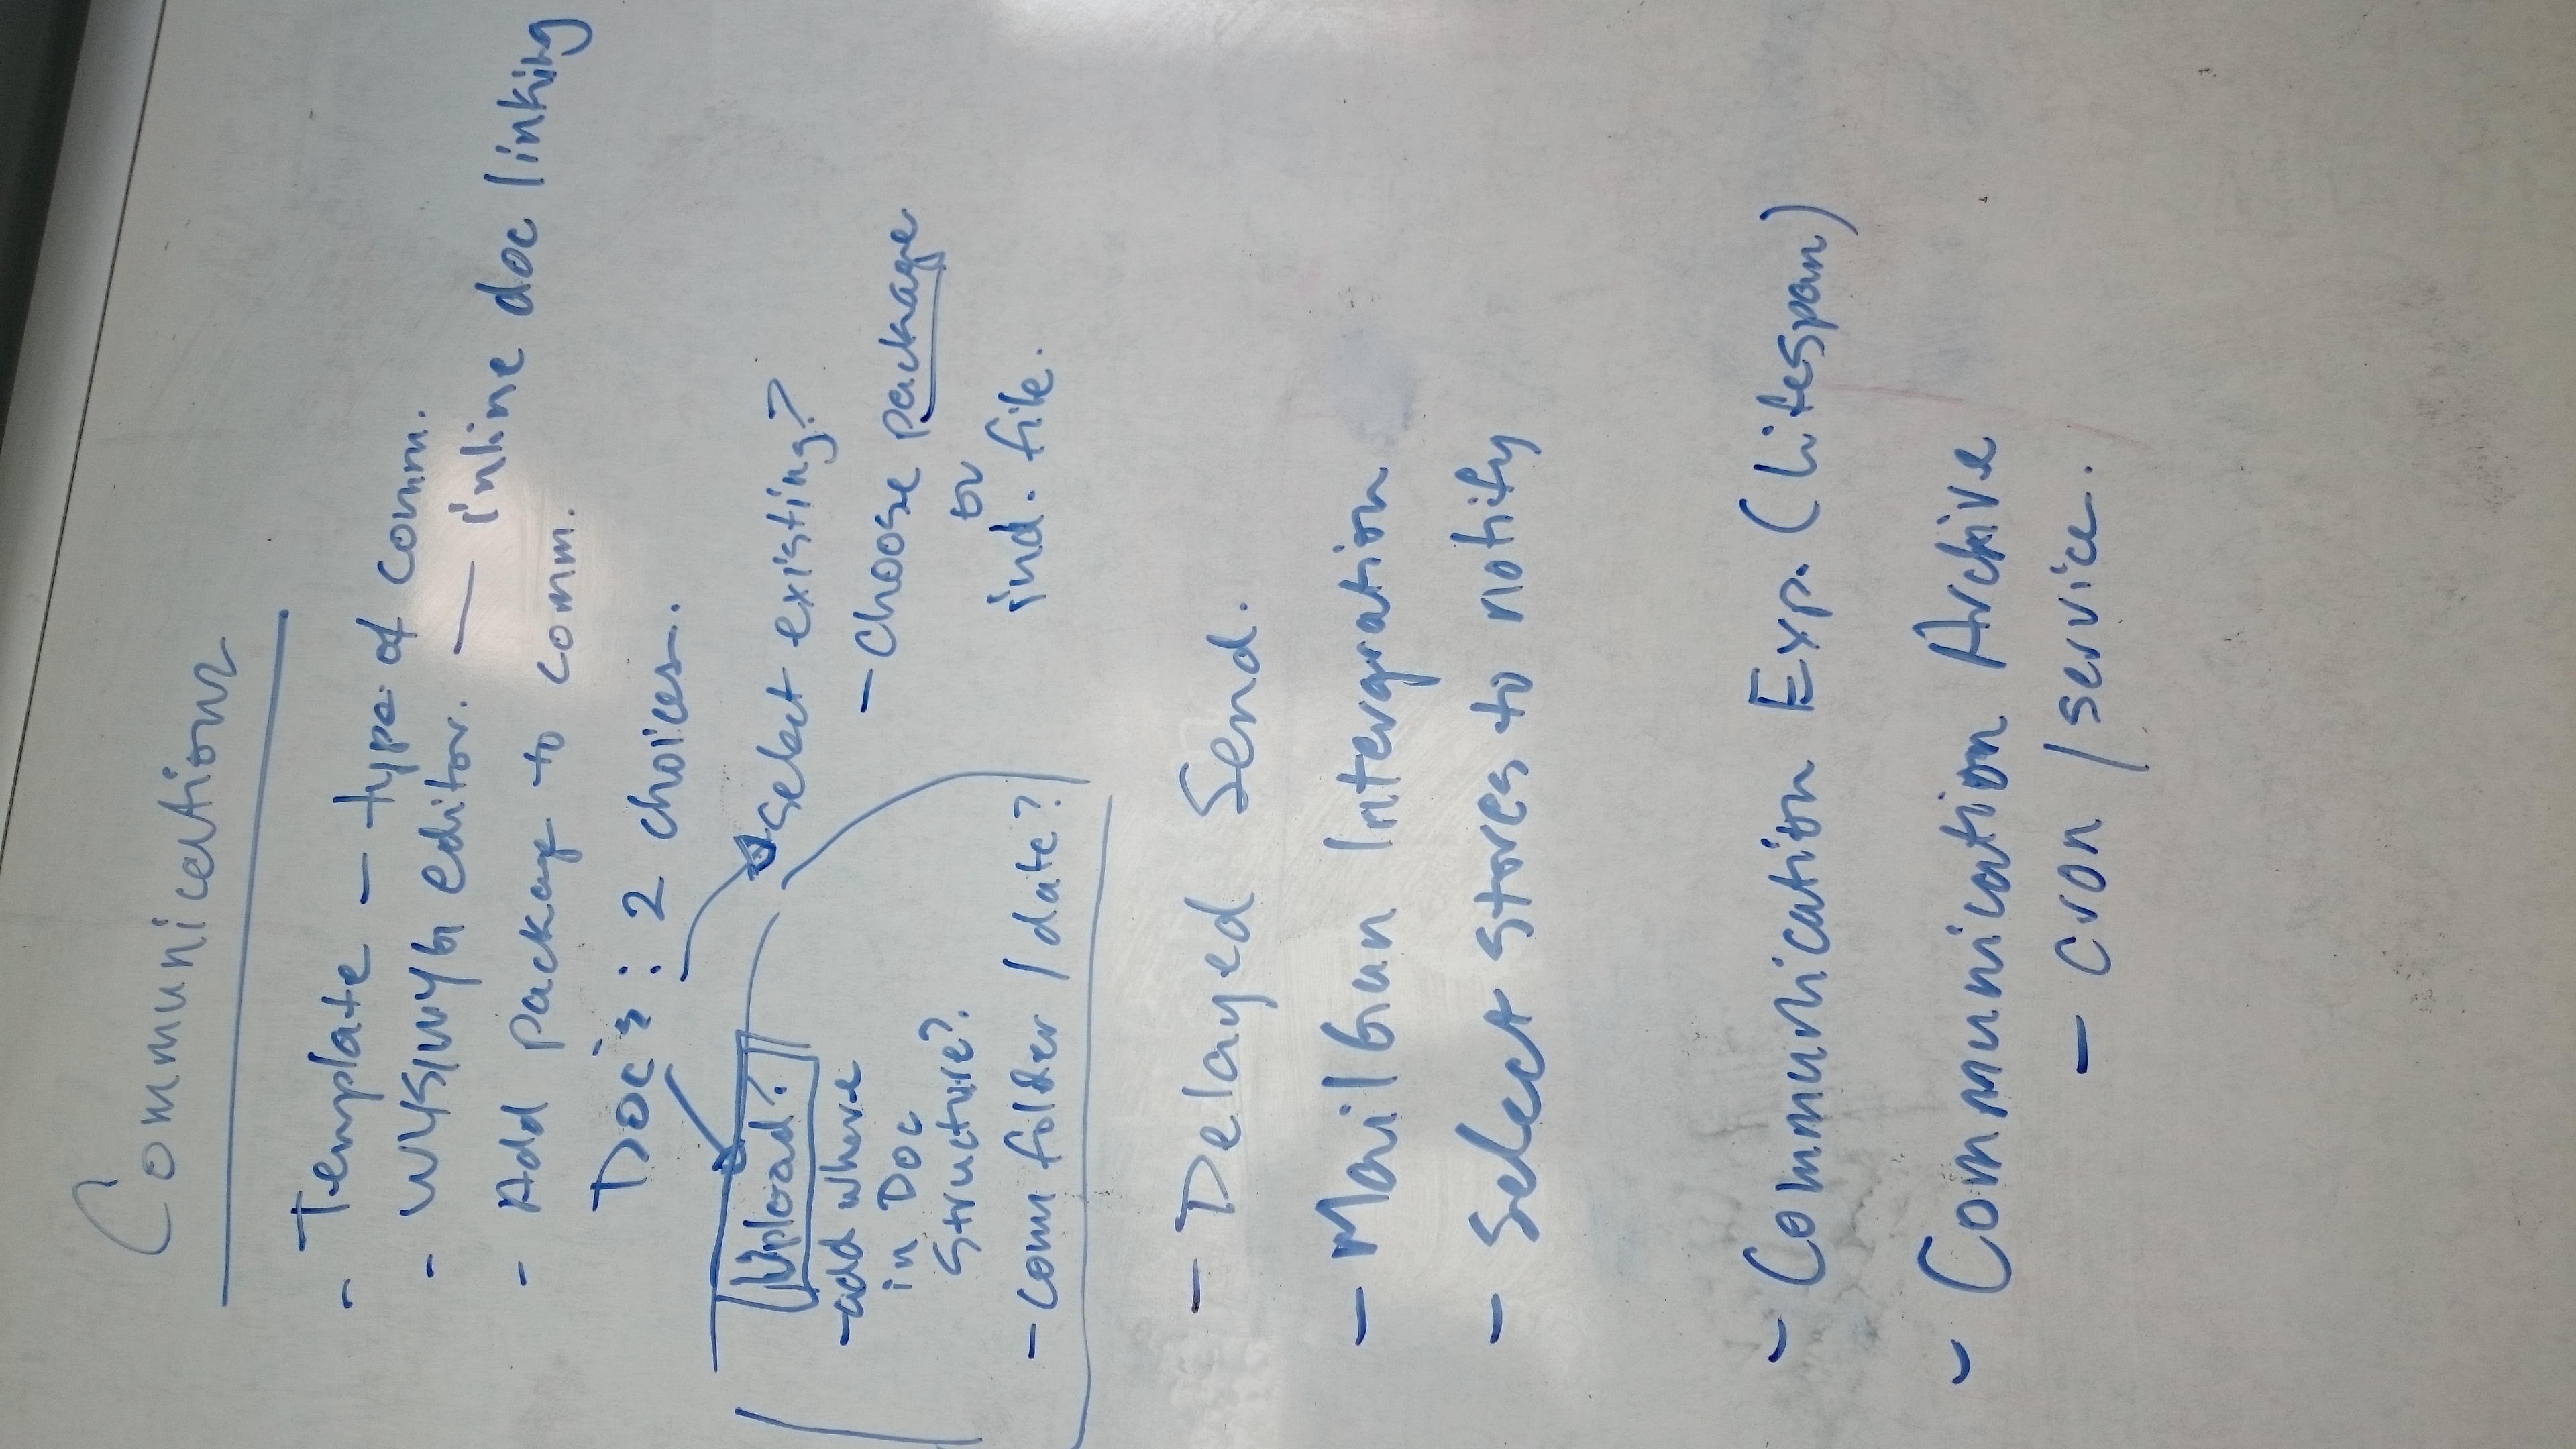 Communications
- Template - type of comm.
- WYSIWYG editor. — inline doc linking
- Add package to comm.
Doc's : 2 choices.
Upload?
- add where
in Doc
Structure?
- comm folder / date?
Select existing?
- Choose package
or
ind. file.
- Delayed Send.
- MailGun Intergration
- Select stores to notify
- Communication Exp. (lifespan)
- Communication Archive
- cron / service.